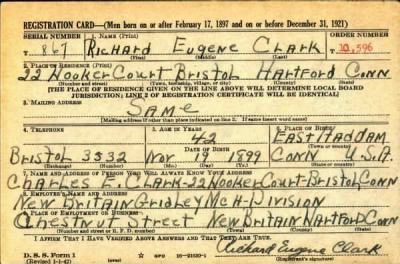 REGISTRATION CARD—(Men born on or after February 17, 1897 and on or before December 31, 1921)
SERIAL NUMBER 1. NAME (Print) ORDER NUMBER
T 867 Richard Eugene Clark 10,596
(First) (Middle) (Last)
2. PLACE OF RESIDENCE (Print)
22 Hooker Court Bristol Hartford Conn
(Number and street) (Town, township, village, or city) (County) (State)
[THE PLACE OF RESIDENCE GIVEN ON THE LINE ABOVE WILL DETERMINE LOCAL BOARD
JURISDICTION; LINE 2 OF REGISTRATION CERTIFICATE WILL BE IDENTICAL]
3. MAILING ADDRESS
Same
[Mailing address if other than place indicated on line 2. If same insert word same]
4. TELEPHONE 5. AGE IN YEARS 6. PLACE OF BIRTH
42 East Haddam
DATE OF BIRTH (Town or county)
Bristol 3332 Nov. 19 1899 Conn U.S.A.
(Exchange) (Number) (Mo.) (Day) (Yr.) (State or country)
7. NAME AND ADDRESS OF PERSON WHO WILL ALWAYS KNOW YOUR ADDRESS
Charles E Clark-22 Hooker Court-Bristol Conn
8. EMPLOYER'S NAME AND ADDRESS
New Britain Gridley MCH-Division
9. PLACE OF EMPLOYMENT OR BUSINESS
Chestnut Street New Britain Hartford Conn
(Number and street or R. F. D. number) (Town) (County) (State)
I AFFIRM THAT I HAVE VERIFIED ABOVE ANSWERS AND THAT THEY ARE TRUE.
D. S. S. Form 1
(Revised 1-1-42) (over) Richard Eugene Clark